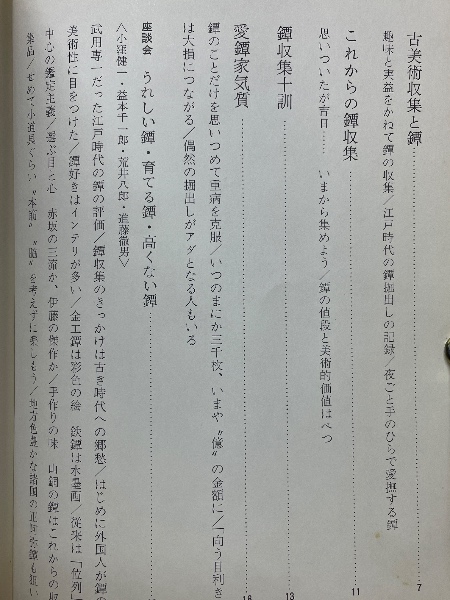 古美術収集と鐔……7
趣味と実益をかねて鐔の収集／江戸時代の鐔掘出しの記録／夜ごと手のひらで愛撫する鐔
これからの鐔収集……11
思いついたが吉日……いまから集めよう／鐔の値段と美術的価値はべつ
鐔収集十訓……13
愛鐔家気質……18
鐔のことだけを思いつめて重病を克服／いつのまにか三千枚、いまや〝億〟の金額に／一向う目利き
は大損につながる／偶然の掘出しがアダとなる人もいる
座談会 うれしい鐔・育てる鐔・高くない鐔
〈小窪健一・益本千一郎・荒井八郎・進藤徹男〉
武用専一だった江戸時代の鐔の評価／鐔収集のきっかけは古き時代への郷愁／はじめに外国人が鐔の
美術性に目をつけた／鐔好きはインテリが多い／金工鐔は彩色の絵 鉄鐔は水墨画／従来は「位列」
中心の鑑定主義／選ぶ目と心 赤坂の三流か、伊藤の傑作か／手作りの味 山銅の鐔はこれからの収
集品／せめて小道具ぐらい〝本筋〟〝脇〟を考えずに楽しもう／地方色豊かな諸国の